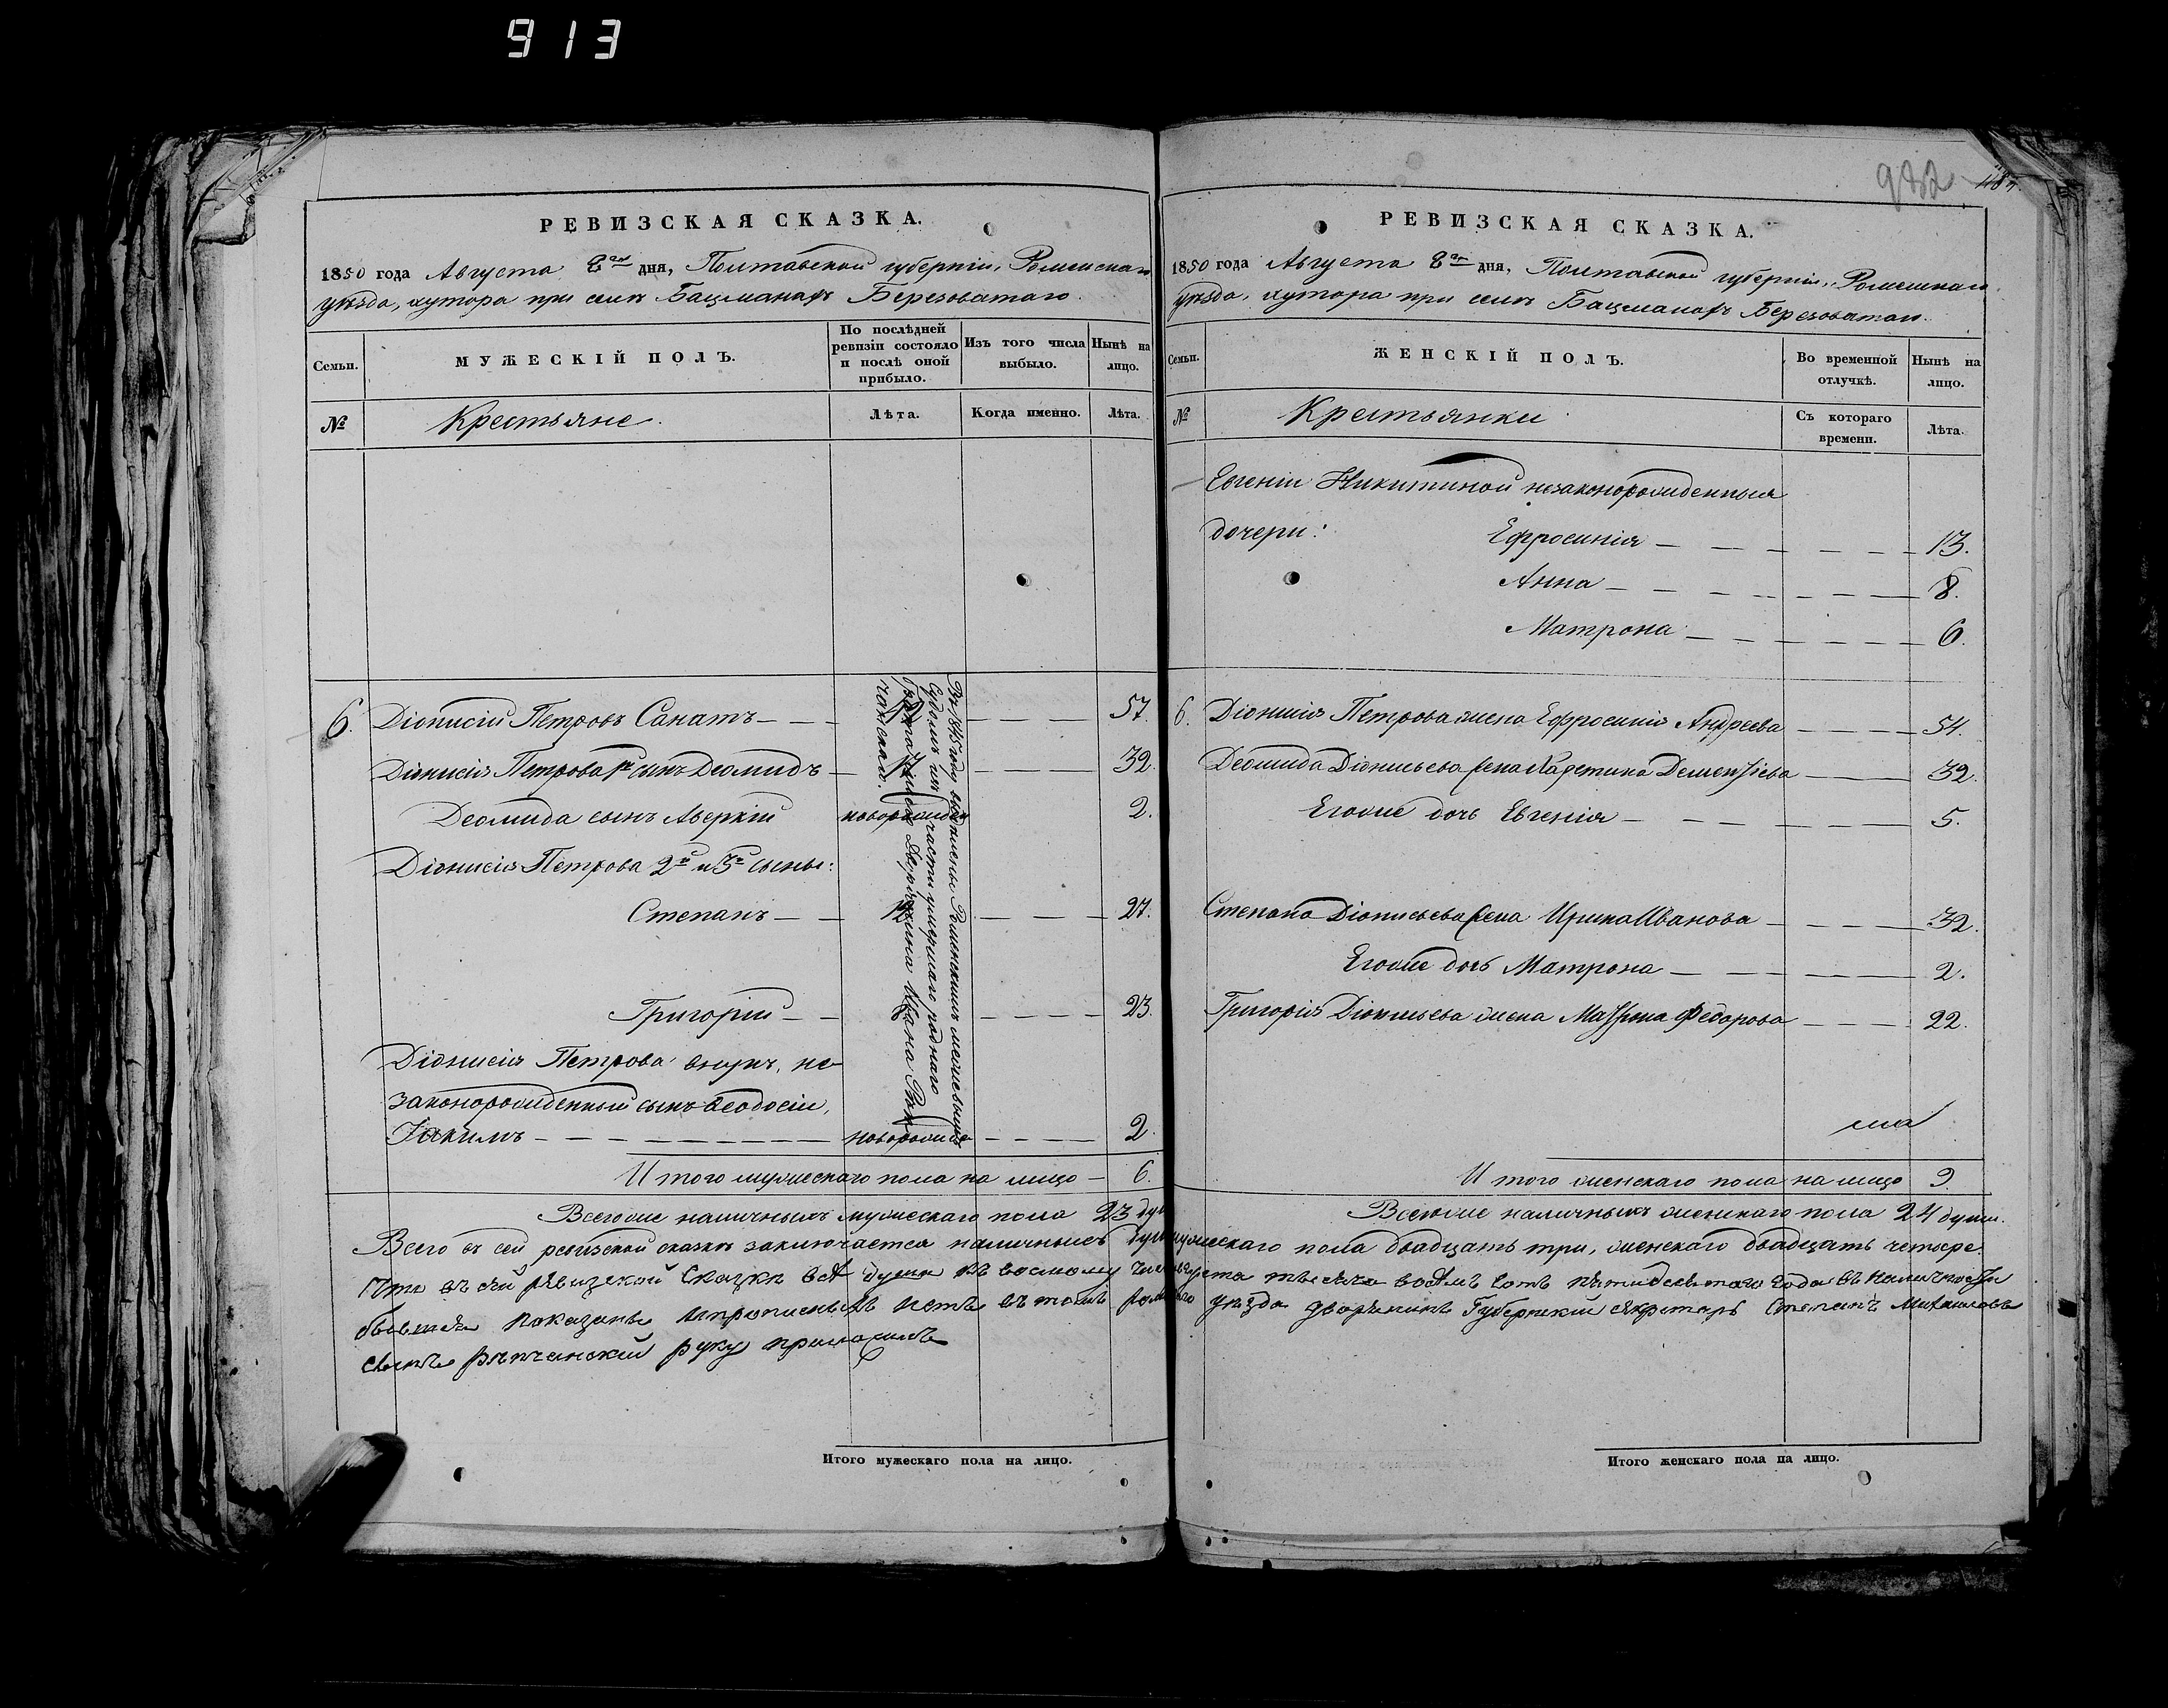 913
982
РЕВИЗСКАЯ СКАЗКА.
1850 года Августа 8го дня, Полтавской губерніи, Роменскаго
уѣзда, хутора при селѣ Бацманахъ Березоватаго.
Семьи.
МУЖЕСКІЙ ПОЛЪ.
По послѣдней ревизіи состояло и послѣ оной прибыло.
Изъ того числа выбыло.
Нынѣ на лицо.
№
Крестьяне.
Лѣта.
Когда именно.
Лѣта.
6. Діонисій Петровъ Санатъ 57.
Діонисія Петрова 1й сынъ Деомидъ 32.
Деомида сынъ Аверкій новорожден 2.
Діонисія Петрова 2й и 3й сыны:
Степанъ 12 27.
Григорій 8 23.
Діонисія Петрова внукъ, не
законорожденный сынъ Ѳеодосіи,
Іакимъ новорожде 2.
Въ 1845 году выключены Роменскимъ
Судомъ изъ части умершаго роднаго
брата Дворянина Ивана Рѣп
чанскаго.
Итого мужескаго пола на лицо 6.
Всего же наличныхъ мужескаго пола 23 душ
РЕВИЗСКАЯ СКАЗКА.
1850 года Августа 8го дня, Полтавской губерніи, Роменскаго
уѣзда, хутора при селѣ Бацманахъ Березоватаго.
Семьи.
ЖЕНСКІЙ ПОЛЪ.
Во временной отлучкѣ.
Нынѣ на лицо.
№
Крестьянки
Съ котораго времени.
Лѣта.
Евгеніи Никитиной незаконорожденныя
дочери: Ефросинія 13.
Анна 8.
Матрона 6.
6. Діонисія Петрова жена Ефросинія Андреева 54.
Деомида Діонисьева жена Харетина Дементіева 32.
Егоже дочь Евгенія 5.
Степана Діонисьева жена Ирина Иванова 32.
Егоже дочь Матрона 2.
Григорія Діонисьева жена Матрона Федорова 22.
Итого женскаго пола на лицо 9.
Всего же наличныхъ женскаго пола 24 души.
Всего въ сей ревизской сказкѣ заключается наличныхъ душ мужескаго пола двадцать три, женскаго двадцать четыре.
Что въ сей ревизской сказкѣ всѣ души къ восмому числу августа тысяча восѣмъ сотъ пятидесятаго года въ наличности
бывшия показаны ипрописныхъ нетъ въ томъ роменскаго уѣзда дворянинъ Губернский секретарь Степанъ Михайловъ
сынъ рѣпчанский руку приложилъ
Итого мужескаго пола на лицо.
Итого женскаго пола на лицо.